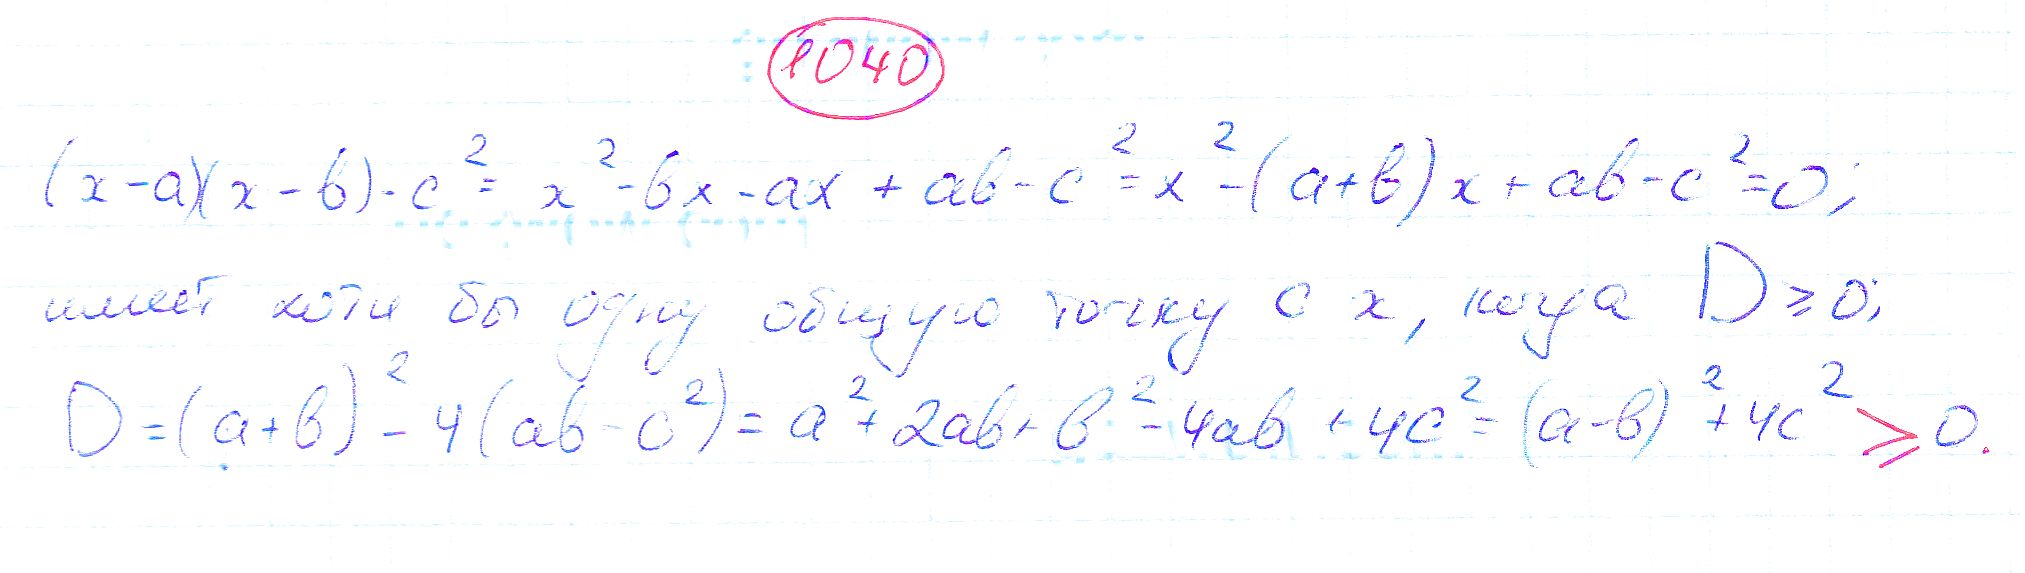 1040
(x-a)(x-b)-c²= x²-bx-ax+ab-c²=x²-(a+b)x+ab-c²=0;
имеет хотя бы одну общую точку с x, когда D≥0;
D=(a+b)²-4(ab-c²)=a²+2ab+b²-4ab+4c²=(a-b)²+4c²≥0.